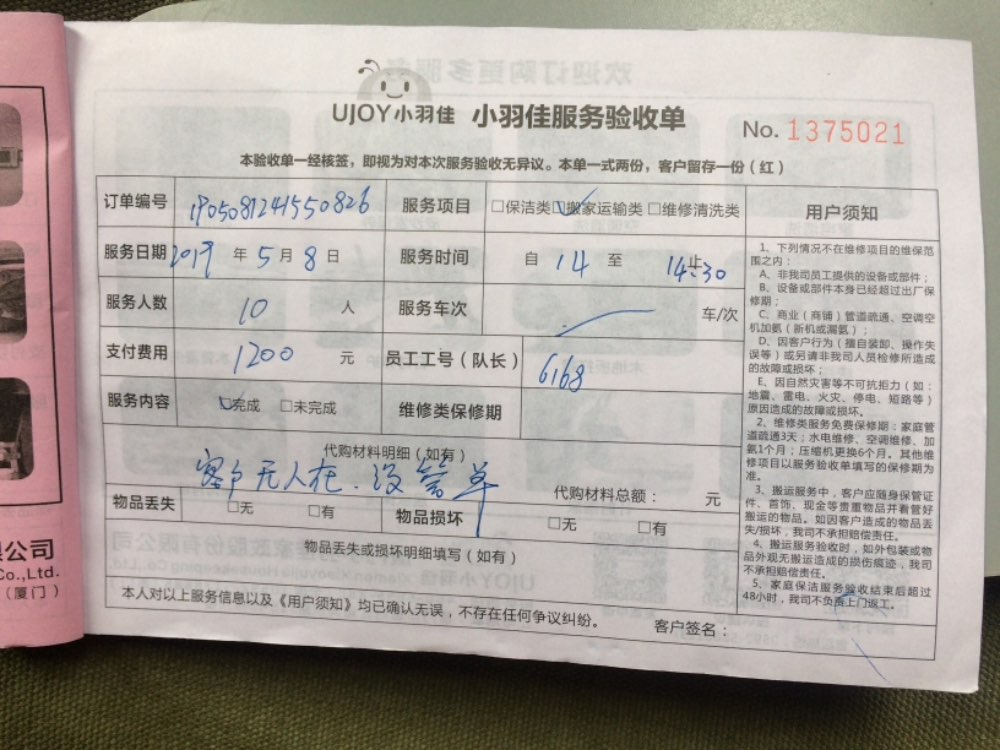 UJOY小羽佳 小羽佳服务验收单
No. 1375021
本验收单一经核签，即视为对本次服务验收无异议。本单一式两份，客户留存一份（红）
订单编号 190508124155082б 服务项目 □保洁类☑搬家运输类□维修清洗类
服务日期 2019 年 5 月 8 日 服务时间 自 14 至 14:30 止
服务人数 10 人 服务车次 车/次
支付费用 1200 元 员工工号（队长） 6168
服务内容 ☑完成 □未完成 维修类保修期
代购材料明细（如有）
客户无人在.没签单
代购材料总额： 元
物品丢失 □无 □有 物品损坏 □无 □有
物品丢失或损坏明细填写（如有）
本人对以上服务信息以及《用户须知》均已确认无误，不存在任何争议纠纷。
客户签名：
用户须知
1、下列情况不在维修项目的维保范
围之内：
A、非我司员工提供的设备或部件；
B、设备或部件本身已经超过出厂保
修期；
C、商业（商铺）管道疏通、空调空
机加氨（新机或漏氨）；
D、因客户行为（擅自装卸、操作失
误等）或另请非我司人员检修所造成
的故障或损坏；
E、因自然灾害等不可抗拒力（如：
地震、雷电、火灾、停电、短路等）
原因造成的故障或损坏。
2、维修类服务免费保修期：家庭管
道疏通3天；水电维修、空调维修、加
氨1个月；压缩机更换6个月。其他维
修项目以服务验收单填写的保修期为
准。
3、搬运服务中，客户应随身保管证
件、首饰、现金等贵重物品并看管好
搬运的物品。如因客户造成的物品丢
失/损坏，我司不承担赔偿责任。
4、搬运服务验收时，如外包装或物
品外观无搬运造成的损伤痕迹，我司
不承担赔偿责任。
5、家庭保洁服务验收结束后超过
48小时，我司不负责上门返工。
限公司
Co.,Ltd.
（厦门）